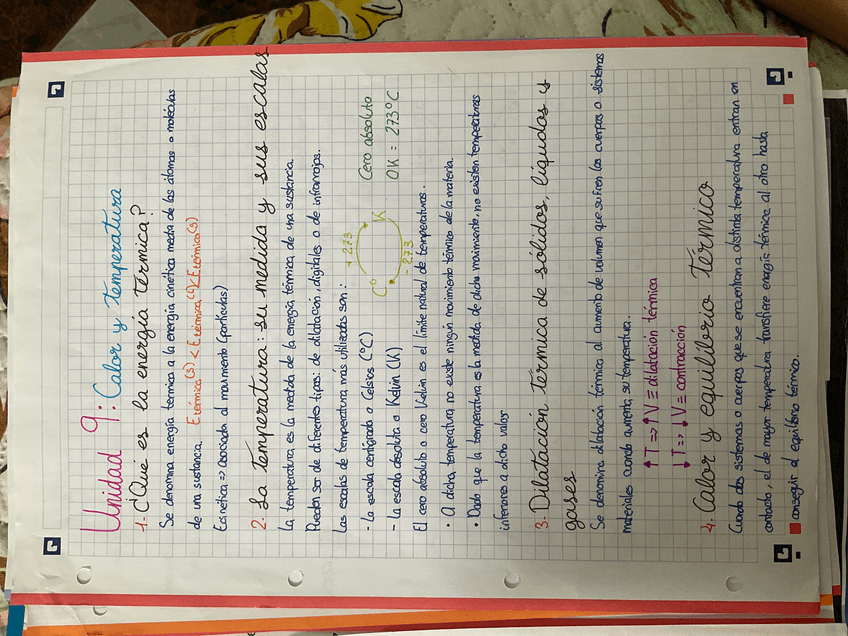 Unidad 9: Calor y temperatura
1- ¿Qué es la energía térmica?
Se denomina energía térmica a la energía cinética media de los átomos o moléculas
de una sustancia. E térmica (S) < E térmica (L) < E térmica (G)
Ecinética => asociada al movimiento (partículas)
2- La temperatura: su medida y sus escalas
La temperatura es la medida de la energía térmica de una sustancia.
Pueden ser de diferentes tipos: de dilatación, digitales o de infrarrojos.
Las escalas de temperatura más utilizadas son:
- La escala centígrada o Celsius (°C)
- La escala absoluta o Kelvin (K)
+ 273
C° K
- 273
Cero absoluto
0K = 273°C
El cero absoluto o cero Kelvin es el límite natural de temperaturas.
• A dicha temperatura no existe ningún movimiento térmico de la materia.
• Dado que la temperatura es la medida de dicho movimiento, no existen temperaturas
inferiores a dicho valor
3. Dilatación térmica de sólidos, líquidos y
gases
Se denomina dilatación térmica al aumento de volumen que sufren los cuerpos o sistemas
materiales cuando aumenta su temperatura.
↑T => ↑V ≡ dilatación térmica
↓T => ↓V ≡ contracción
4. Calor y equilibrio térmico
Cuando dos sistemas o cuerpos que se encuentran a distinta temperatura entran en
contacto, el de mayor temperatura transfiere energía térmica al otro hasta
conseguir el equilibrio térmico.